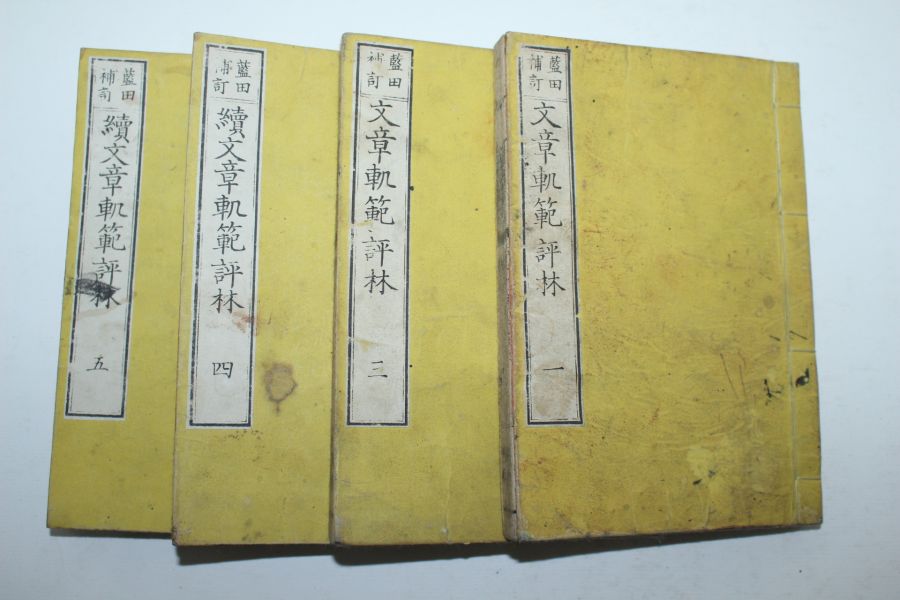 藍田
補訂
文章軌範評林
一
藍田
補訂
文章軌範評林
三
藍田
補訂
續文章軌範評林
四
藍田
補訂
續文章軌範評林
五